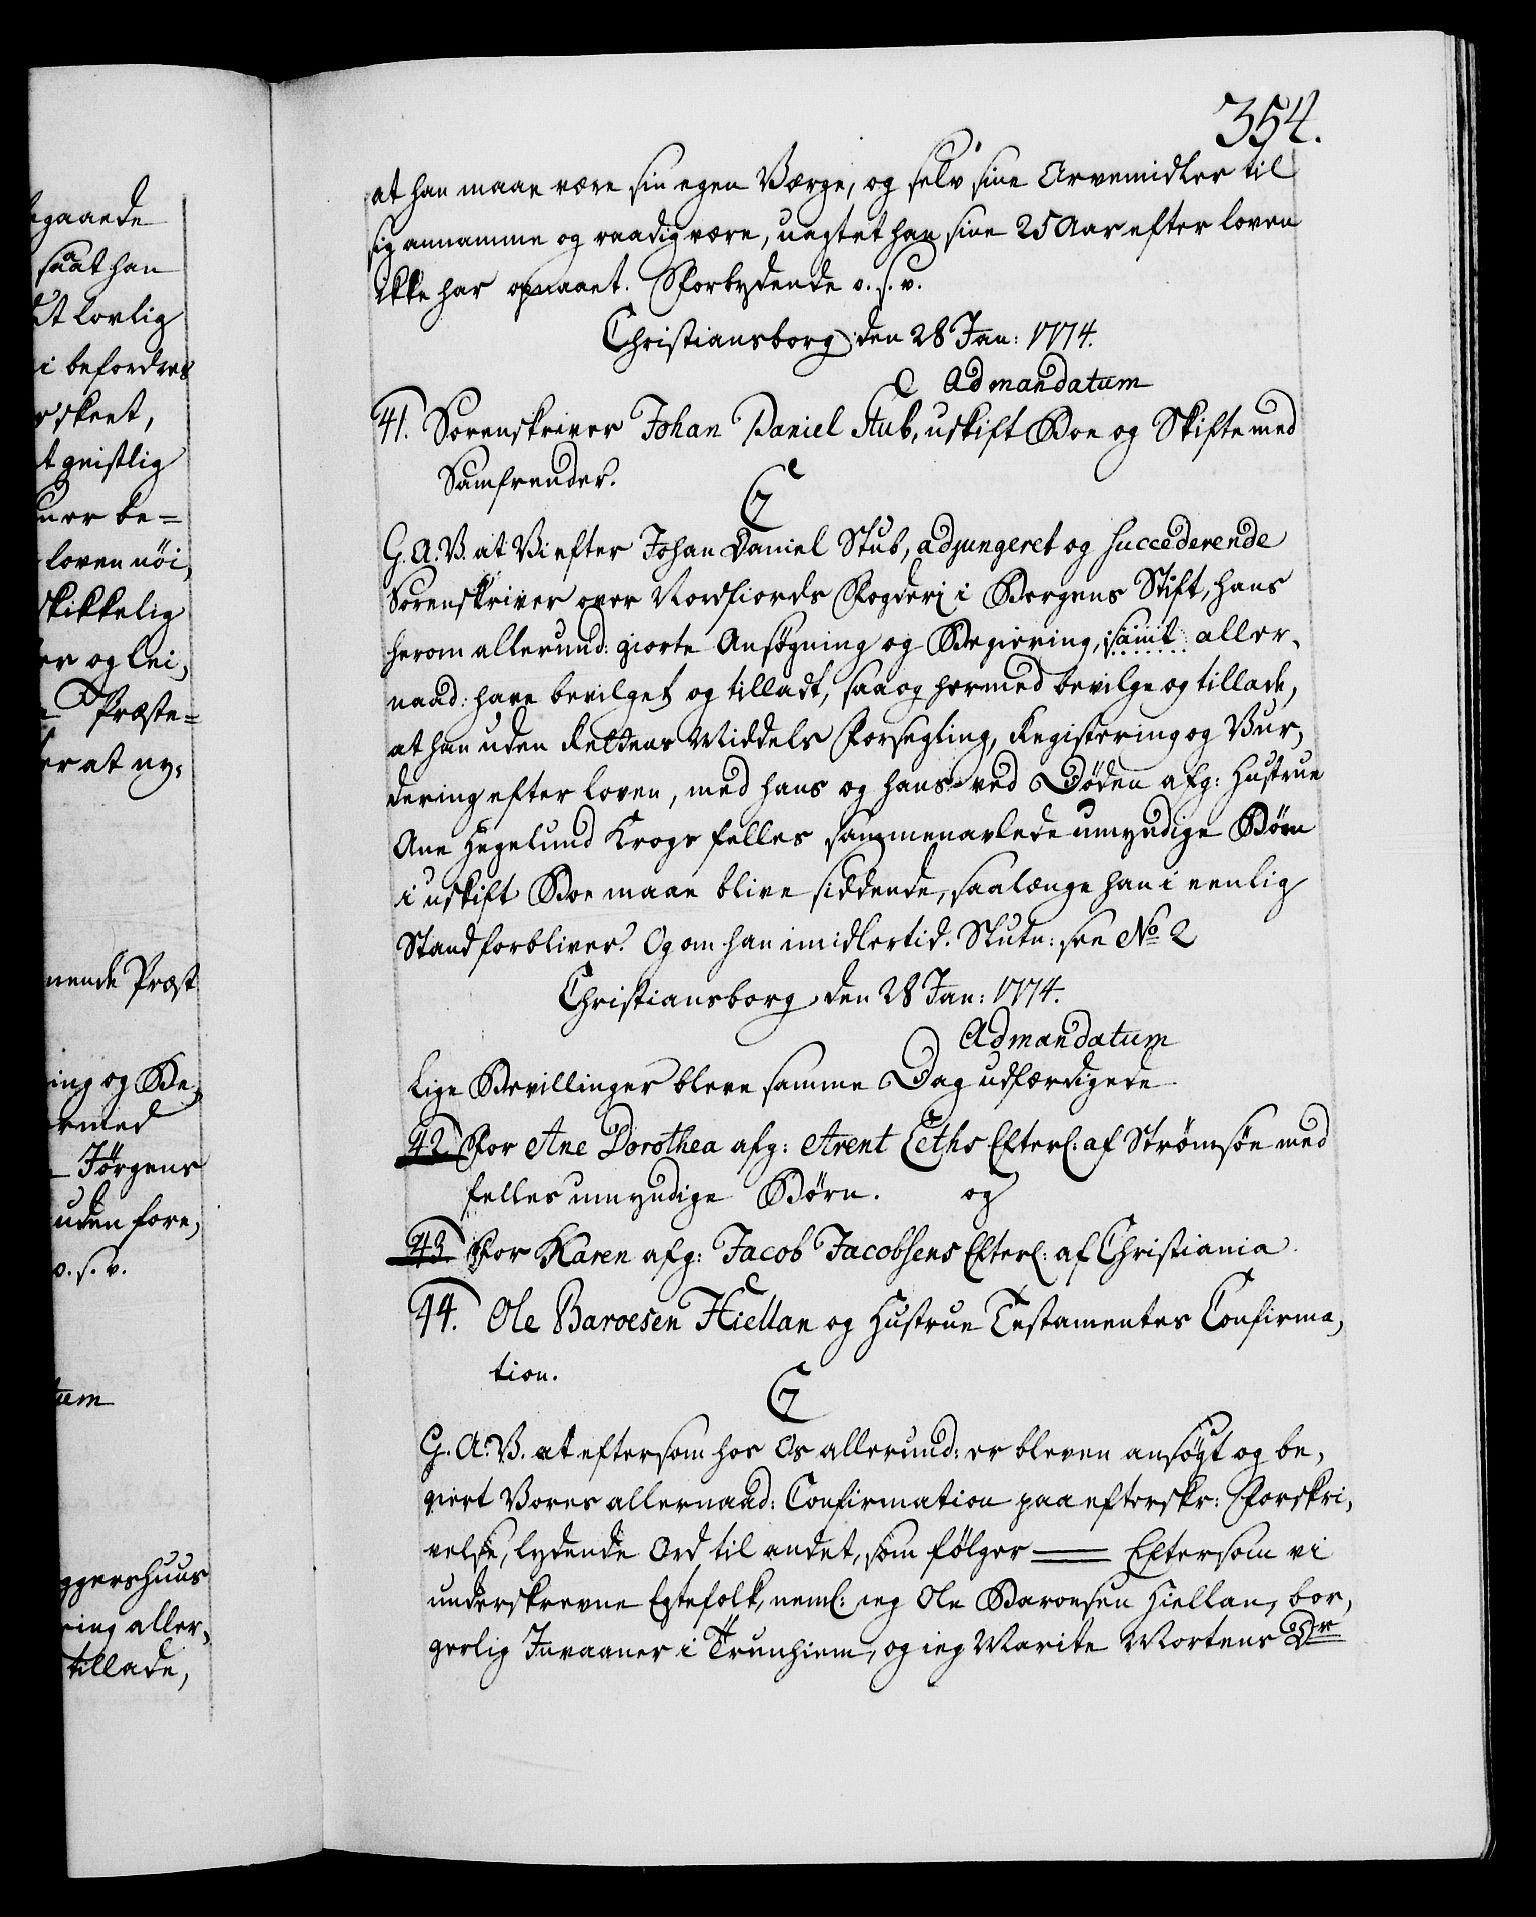 354.
at han maae være sin egen Værge, og selv sine Arvemidler til
sig annamme og raadig være, uagtet han sine 25 Aar efter loven
ikke har opnaaet. Forbydende o. s. v.
Christiansborg den 28 Jan: 1774.
Ad mandatum
41. Sorenskriver Johan Daniel Stub, uskift Boe og Skifte med
Samfrender.
G. A. V. at Vi efter Johan Daniel Stub, adjungeret og Succederende
Sorenskriver over Nordfiords Fogderi i Bergens Stift, hans
herom allerund: giorte Ansøgning og Begiering, samt aller-
naad: have bevilget og tilladt, saa og hermed bevilge og tillade,
at han uden Rettens Middels Forsegling, Registering og Vur-
dering efter loven, med hans og hans ved Døden afg: Hustrue
Ane Hegelund Krogs felles sammenavlede umyndige Børn
i uskift Boe maae blive siddende, saalænge han i eenlig
Stand forbliver? Og om han imidlertid. Slutn: see No 2
Christiansborg den 28 Jan: 1774.
Ad mandatum
Lige Bevillinger bleve samme Dag udfærdigede
42 For Ane Dorothea afg: Arent Leths Efterl: af Strømsøe med
felles umyndige Børn. og
43 For Karen afg: Jacob Jacobsens Efterl: af Christiania
44. Ole Baroesen Hiellan og Hustrue Testamentes Confirma-
tion.
G. A. V. at eftersom hos Os allerund: er bleven ansøgt og be-
giert Vores allernaad: Confirmation paa efterskr: Forskri-
velse, lydende Ord til andet, som følger ___ Eftersom vi
underskrevne Egtefolk, neml: ieg Ole Baroesen Hiellan, bor-
gerlig Invaaner i Trunhiem, og ieg Marite Mortens Dr
egaaende
saat han
dt lovlig
i befordres
r skeet,
t geistlig
ner be=
loven nøi,
skikkelig
er og lei,
Præste=
er at ny,
nende Præst
ing og Be,
ermed
Jörgens
uden fore,
o. s. v.
tum
ggershuus
ring aller,
tillade,